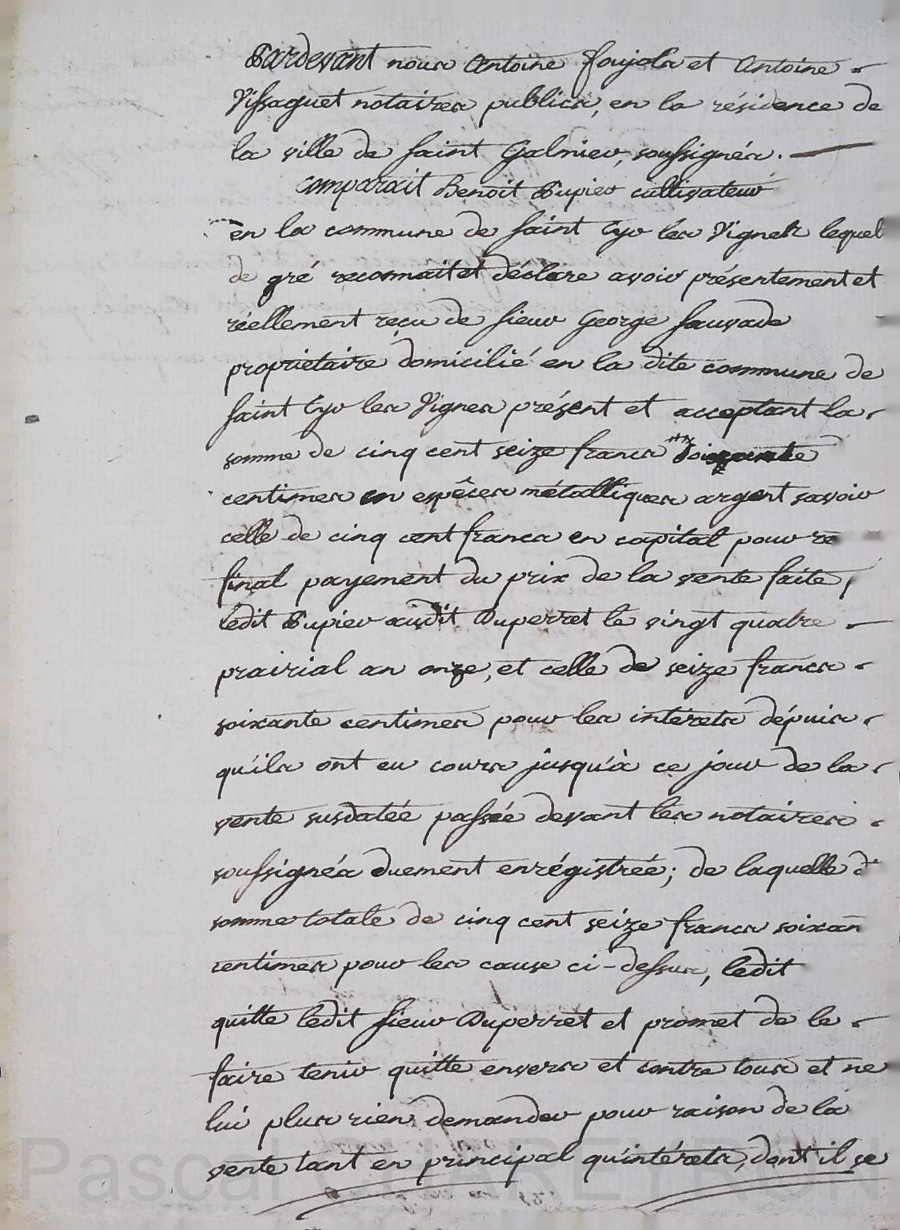 Pardevant nous Antoine foujols et Antoine
Vissaguet notaires publics, en la résidence de
la ville de saint Galmier, soussignés.
comparait Benoit Dupier cultivateur
en la commune de saint Cyr les Vignes lequel
de gré reconnait et déclare avoir présentement et
réellement reçu de sieur George sauvade
propriétaire domicilié en la dite commune de
saint Cyr les Vignes présent et acceptant la
somme de cinq cent seize francs soixante
centimes en espèces métalliques argent savoir
celle de cinq cent francs en capital pour re
final payement du prix de la vente faite
ledit Dupier audit Duperret le vingt quatre
prairial an onze, et celle de seize francs
soixante centimes pour les intérets dépuis
qu'ils ont eu cours jusqu'à ce jour de la
vente susdatée passée devant les notaires
soussignés duement enrégistrée; de laquelle d
somme totale de cinq cent seize francs soixan
centimes pour les cause ci-dessus, ledit
quitte ledit sieur Duperret et promet de le
faire tenir quitte envers et contre tous et ne
lui plus rien demander pour raison de la
vente tant en principal qu'intérets, dont il se
Pascal CHAREYRON